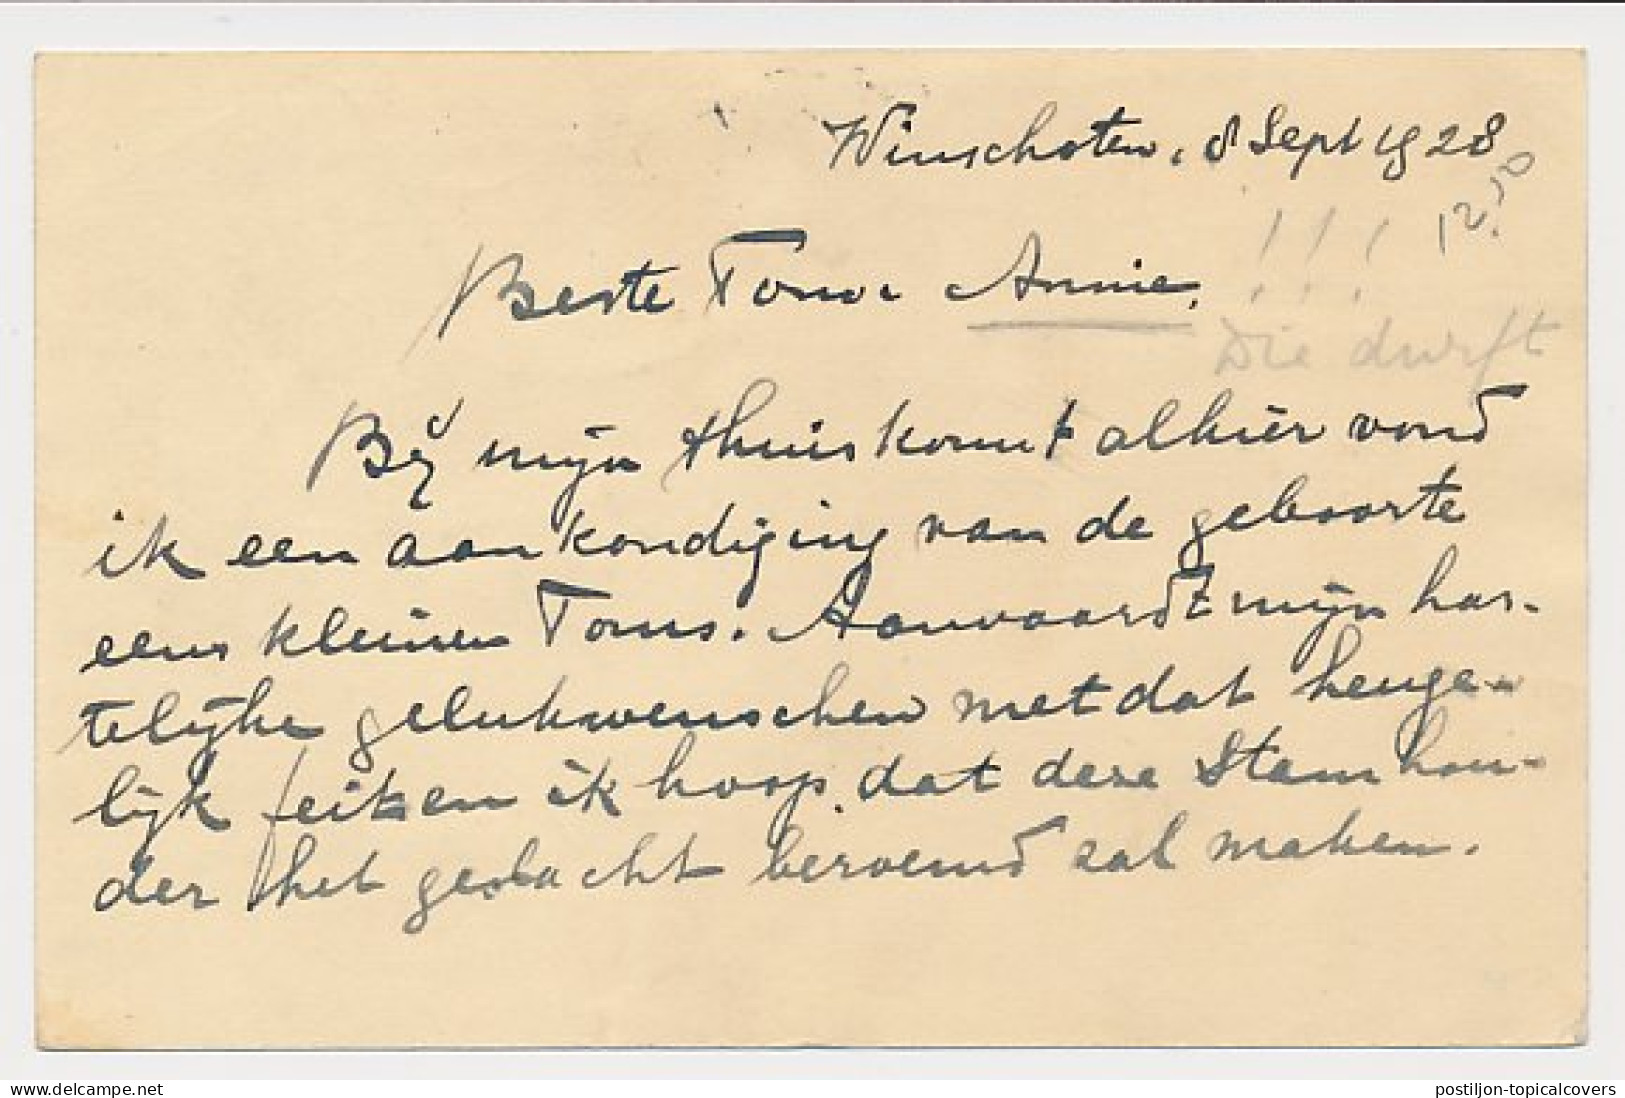 Winschoten, 8 Sept 1928
12.50
! ! !
Beste Tom. Annie,
Die durft
Bij mijn thuiskomst alhier vond
ik een aankondiging van de geboorte
eens kleinen Toms. Aanvaardt mijn har-
telijke gelukwenschen met dat heuge-
lijk feit en ik hoop dat deze Stamhou-
der het geslacht beroemd zal maken.
delcampe.net
postiljon-topicalcovers